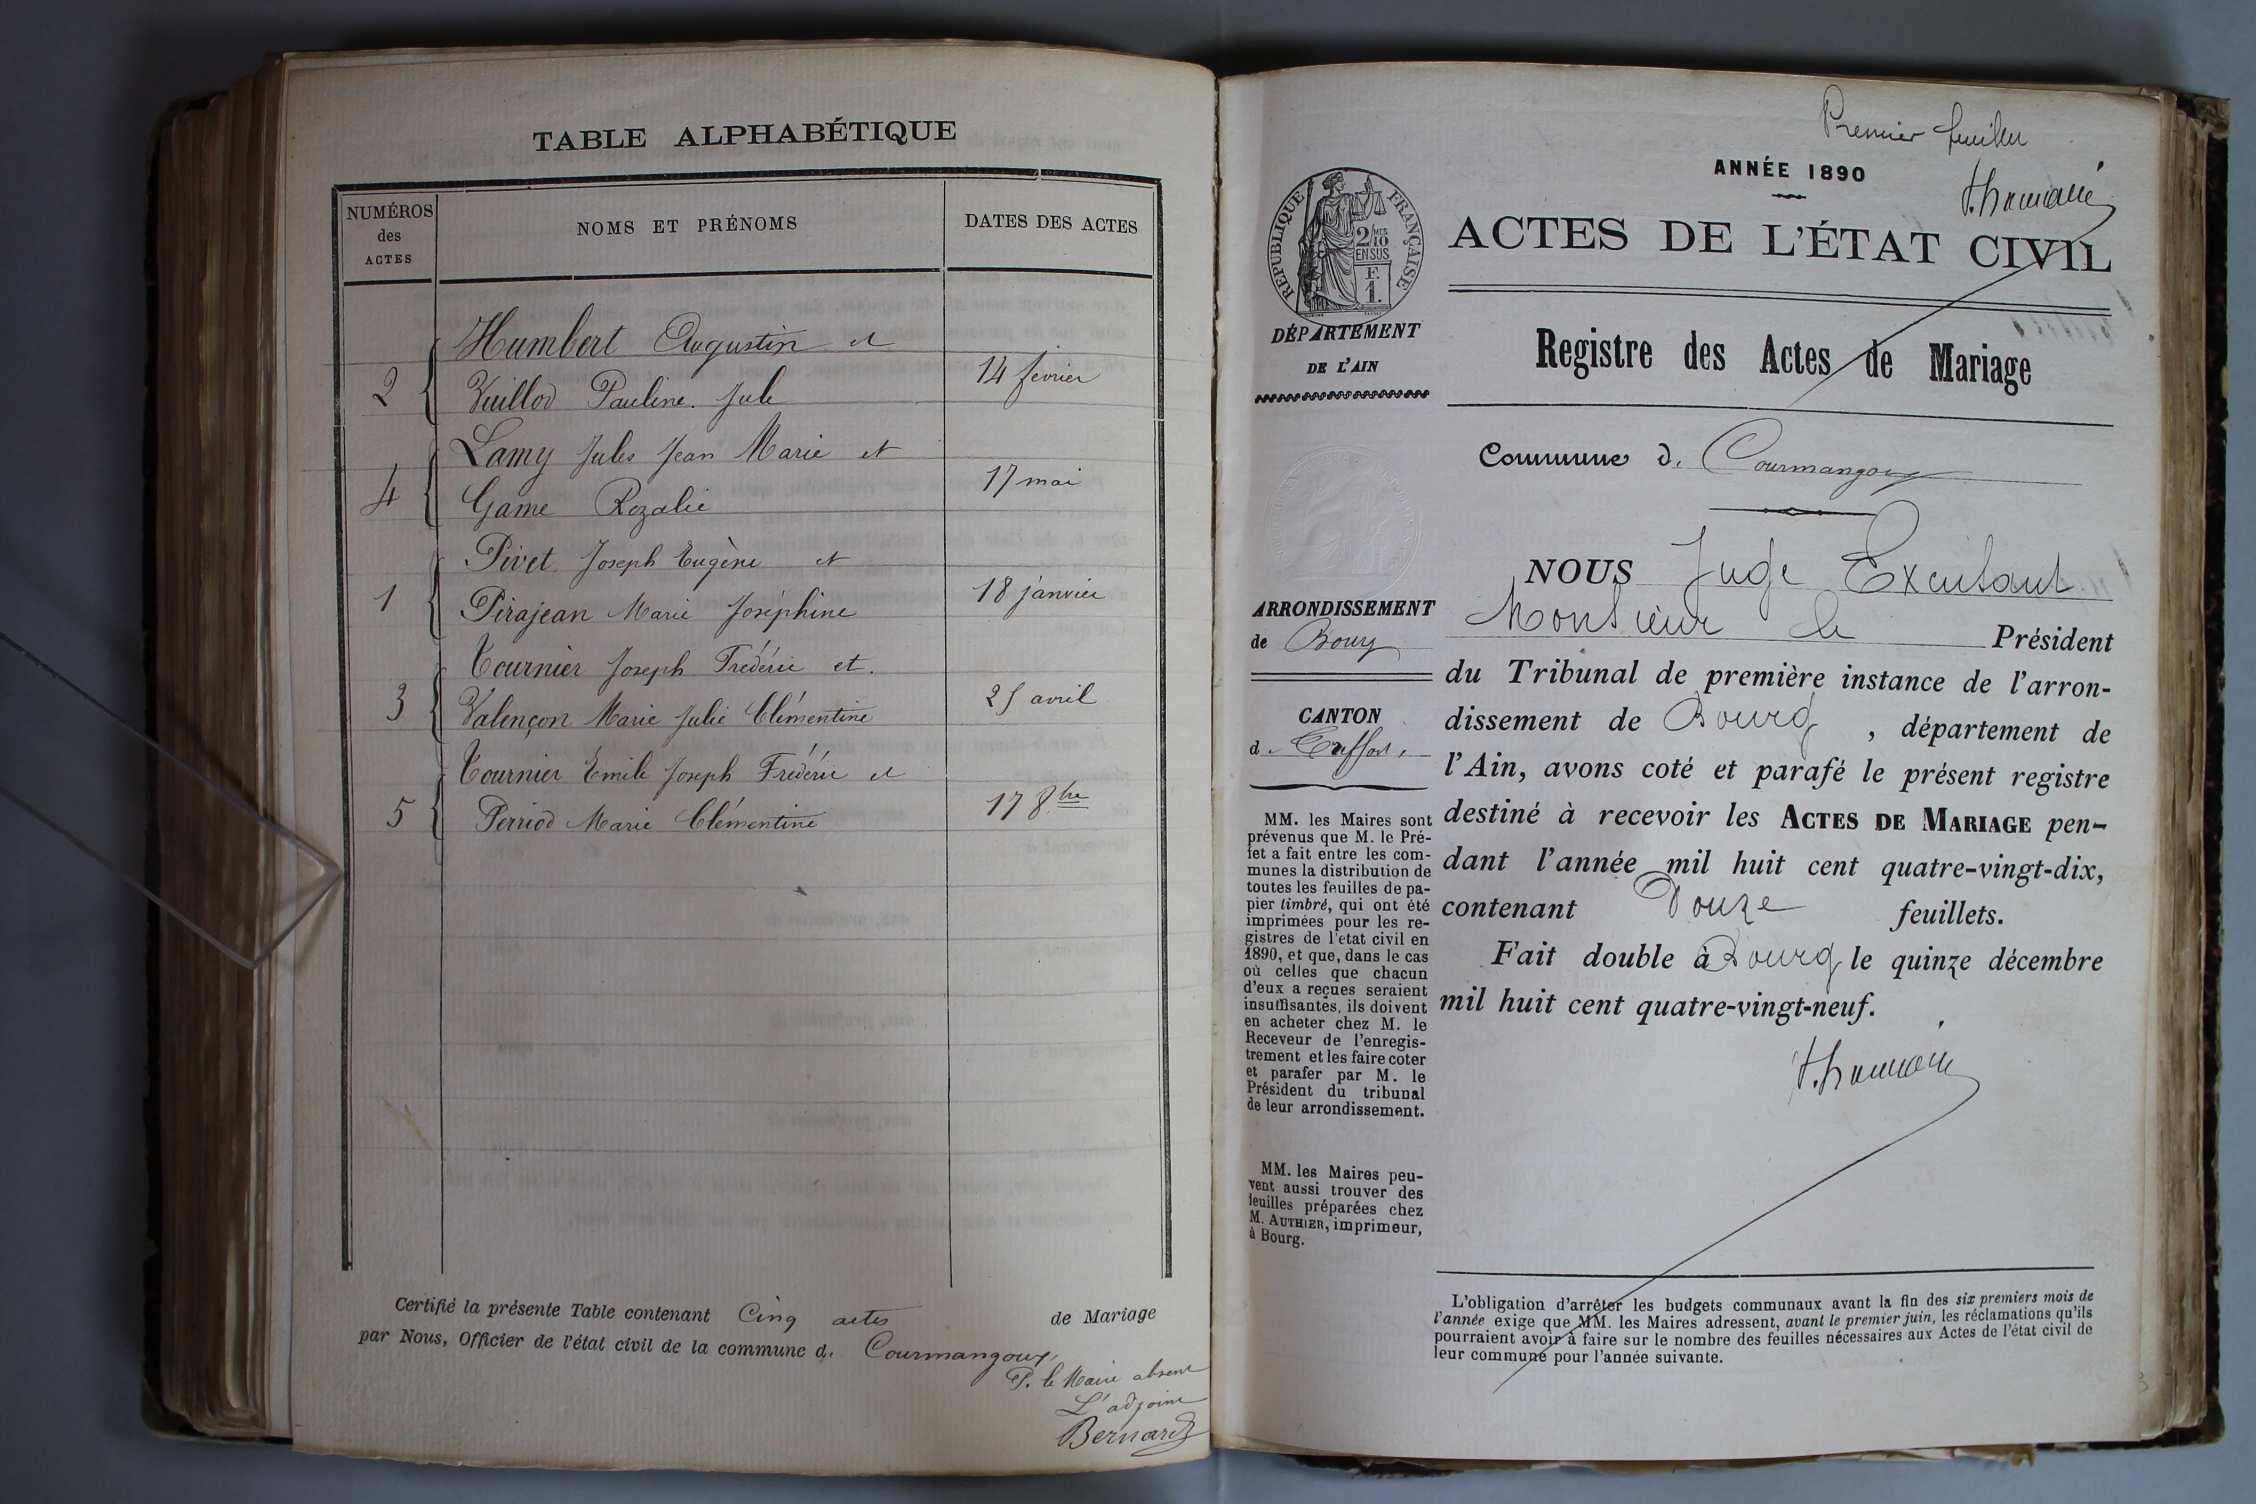 TABLE ALPHABÉTIQUE
NUMÉROS
des
ACTES
NOMS ET PRÉNOMS
DATES DES ACTES
Humbert Augustin et
2
14 février
Vuillod Pauline Julie
Lamy Jules Jean Marie et
4
17 mai
Game Rozalie
Pivet Joseph Eugène et
1
18 janvier
Pirajean Marie Joséphine
Tournier Joseph Frédéric et.
3
25 avril
Valençon Marie Julie Clémentine
Tournier Emile Joseph Frédéric et
5
17 8bre
Perriod Marie Clémentine
Certifié la présente Table contenant Cinq actes de Mariage
par Nous, Officier de l'état civil de la commune d. Courmangoux,
P. le Maire absent
L'adjoint
Bernard
Premier feuillet
ANNÉE 1890
ACTES DE L'ÉTAT CIVIL
RÉPUBLIQUE FRANÇAISE
2 MES
10
EN SUS
F.
1.
DÉPARTEMENT
DE L'AIN
Registre des Actes de Mariage
Commune d. Courmangoux
ARRONDISSEMENT
de Bourg
CANTON
d. Treffort,
MM. les Maires sont
prévenus que M. le Pré-
fet a fait entre les com-
munes la distribution de
toutes les feuilles de pa-
pier timbré, qui ont été
imprimées pour les re-
gistres de l'etat civil en
1890, et que, dans le cas
où celles que chacun
d'eux a reçues seraient
insuffisantes, ils doivent
en acheter chez M. le
Receveur de l'enregis-
trement et les faire coter
et parafer par M. le
Président du tribunal
de leur arrondissement.
MM. les Maires peu-
vent aussi trouver des
feuilles préparées chez
M. AUTHIER, imprimeur,
à Bourg.
NOUS Juge Excusant
Monsieur le Président
du Tribunal de première instance de l'arron-
dissement de Bourg, département de
l'Ain, avons coté et parafé le présent registre
destiné à recevoir les ACTES DE MARIAGE pen-
dant l'année mil huit cent quatre-vingt-dix,
contenant Douze feuillets.
Fait double à Bourg le quinze décembre
mil huit cent quatre-vingt-neuf.
L'obligation d'arrêter les budgets communaux avant la fin des six premiers mois de
l'année exige que MM. les Maires adressent, avant le premier juin, les réclamations qu'ils
pourraient avoir à faire sur le nombre des feuilles nécessaires aux Actes de l'état civil de
leur commune pour l'année suivante.